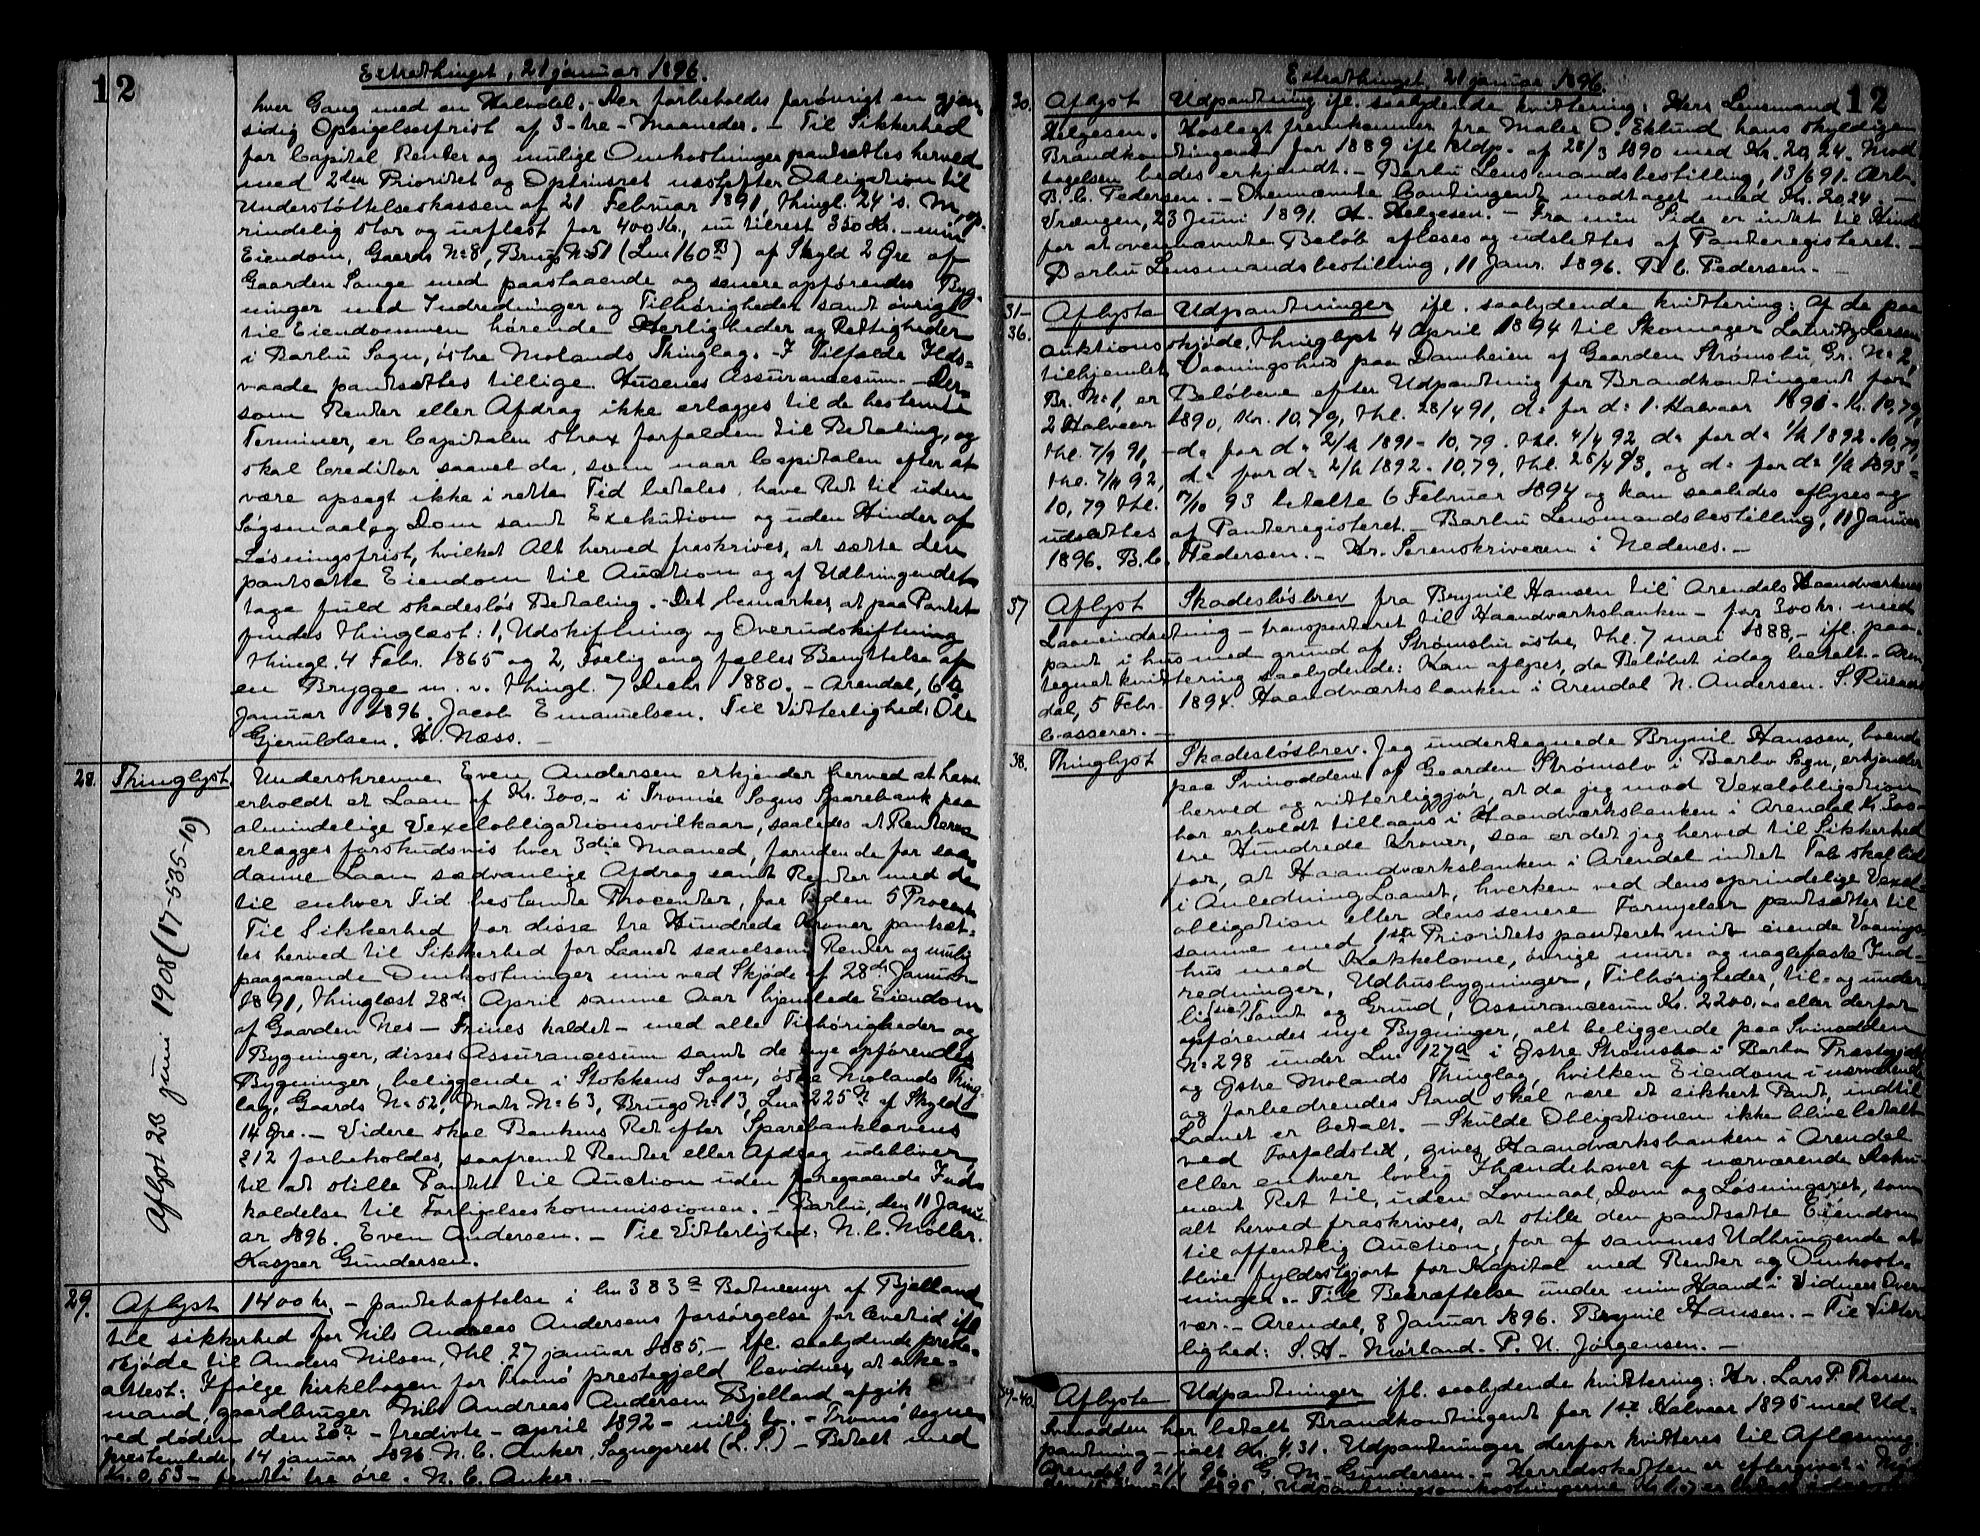 12
Extrathinget, 21 januar 1896.
hver Gang med en Halvdel. - Der forbeholdes forøvrigt en gjen-
sidig Opsigelsesfrist af 3 - tre - Maaneder. - Til Sikkerhed
for Capital, Renter og mulige Omkostninger pantsættes herved
med 2den Prioritet og Optrinsret næstefter Obligation til
Understøttelseskassen af 21 Februar 1891, thingl. 24 s. M, op-
rindelig stor og udfløst for 400 Kr., nu tilrest 350 Kr. - min
Eiendom, Gaards No 8, Brugs No 51 (Lnr 160 B) af Skyld 2 Øre af
Gaarden Songe med paastaaende og senere opførendes Byg-
ninger med Indredninger og Tilhørigheder samt øvrige
til Eiendommen hørende Herligheder og Rettigheder
i Barbu Sogn, østre Molands Thinglag. - I Tilfælde Ilds-
vaade pantsættes tillige Husenes Assurancesum. - Der-
som Renter eller Afdrag ikke erlægges til de bestemte
Terminer, er Capitalen strax forfalden til Betaling, og
skal Creditor saavel da, som naar Capitalen efter at
være opsagt ikke i rette Tid betales, have Ret til uden
Søgsmaal og Dom samt Exekution og uden Hinder af
Løsningsfrist, hvilket Alt herved fraskrives, at sætte den
pantsatte Eiendom til Auction og af Udbringendet
tage fuld skadesløs Betaling. - Det bemærkes, at paa Pantet
findes thinglæst: 1, Udskiftning og Overudskiftning
thingl. 4 Febr. 1865 og 2, Forlig ang fælles Benyttelse af
en Brygge m. v. thingl. 7 Decbr 1880. - Arendal, 6te
Januar 1896. Jacob Emanuelsen. Til Vitterlighed: Ole
Gjeruldsen. H. Næss. -
28. Thinglyst. Underskrevne Even Andersen erkjender herved at have
erholdt et Laan af Kr. 300, - i Tromøe Sogns Sparebank paa
almindelige Vexelobligationsvilkaar, saaledes at Renterne
erlægges forskudsvis hver 3die Maaned, foruden de for saa-
danne Laan sædvanlige Afdrag samt Renter med de
til enhver Tid bestemte Procenter, for Tiden 5 Procent.
Til Sikkerhed for disse tre Hundrede Kroner pantsæt-
tes herved til Sikkerhed for Laanet saavelsom Renter og mulig
paagaaende Omkostninger min ved Skjøde af 28de Januar
1891, thinglæst 28de April samme Aar hjemlede Eiendom
af Gaarden Nes - Frines kaldet - med alle Tilhørigheder og
Bygninger, disses Assurancesum samt de nye opførendes
Bygninger, beliggende i Stokkens Sogn, østre Molands Thing-
lag, Gaards No 52, Matr No 63, Brugs No 13, Lnr 225 af Skyld
14 Øre. - Videre skal Bankens Ret efter Sparebanklovens
§ 12 forbeholdes, saafremt Renter eller Afdrag udebliver
til at stille Pantet til Auction uden foregaaende Ind-
kaldelse til Forligelseskommissionen. - Barbu, den 11 Janu-
ar 1896. Even Andersen. - Til Vitterlighed: N. C. Møller.
Kasper Gundersen.
Aflyst 23 juni 1908 (17-535-10)
29. Aflyst 1400 kr. - panteheftelse i lnr 383 a Botnemyr af Bjelland
til sikkerhed for Nils Andreas Andersens forsørgelse for levetid ifl
skjøde til Anders Nilsen, thl. 27 januar 1885, - ifl. saalydende preste-
attest: Ifølge kirkebogen for Tromø prestegjeld bevidnes, at enke-
mand, gaardbruger Nils Andreas Andersen Bjelland afgik
ved døden den 30te - tredivte - april 1892 - nitti to. - Tromø sogne-
prestembede, 14 januar 1896 N. C. Anker, Sogneprest (L. S.) - Betalt med
Kr. 0,53 - femti tre øre. N. C. Anker. -
Extrathinget, 21 januar 1896.
12
30. Aflyst Udpantning ifl. saalydende kvittering: Herr Lensmand
Helgesen. Hoslagt fremkommer fra Maler O. Eklund hans skyldige
Brandkontingent for 1889 ifl. Udp. af 28/3 1890 med Kr. 20,24. Mod-
tagelsen bedes erkjendt. - Barbu Lensmandsbestilling, 13/6 91. Ærb.
B. C. Pedersen. - Ovennævnte Contingent modtaget med Kr. 20,24. -
Vrengen, 23 Juni 1891. A. Helgesen. - Fra min Side er intet til Hinder
for at ovennævnte Beløb aflæses og udslettes af Panteregisteret. -
Barbu Lensmandsbestilling, 11 Janr. 1896. B. C. Pedersen. -
31-
36. Aflyste Udpantninger ifl. saalydende kvittering: Af de paa
auktionsskjøde, thinglyst 4 April 1894 til Skomager Lauritz Larsen
tilhjemlet Vaaningshus paa Damheien af Gaarden Strømsbu, Gr. No 2,
Br. No 1, er Beløbene efter Udpantning for Brandkontingent for
2 Halvaar 1890, Kr. 10,79, thl. 28/4 91, do for do 1. Halvaar 1891 - Kr. 10,79,
thl. 7/9 91, - do for do 2/h 1891 - 10,79. thl. 4/4 92, do for do 1/h 1892 - 10,79,
thl. 7/11 92, do for do 2/h 1892 - 10,79, thl. 25/4 93, og do for do 1/h 1893 -
10,79 thl. 17/10 93 betalte 6 Februar 1894 og kan saaledes aflyses og
udslettes af Panteregisteret. - Barbu Lensmandsbestilling, 11 Januar
1896. B. C. Pedersen. - Hr. Sorenskriveren i Nedenes. -
37 Aflyst Skadesløsbrev fra Brynil Hansen til Arendals Haandværkeres
Laaneindretning - transporteret til Haandværksbanken - for 300 kr. med
pant i hus med grund af Strømsbu østre, thl. 7 mai 1888, - ifl. paa-
tegnet kvittering saalydende: Kan aflyses, da Beløbet idag betalt. - Aren-
dal, 5 Febr. 1894. Haandværksbanken i Arendal N. Andersen. S.
Casserer. -
38. Thinglyst Skadesløsbrev. Jeg undertegnede Brynil Hanssen, boende
paa Svinodden af Gaarden Strømsbo i Barbo Sogn, erkjender
herved og vitterliggjør, at da jeg mod Vexelobligation
har erholdt tillaans i Haandværksbanken i Arendal Kr. 300 -
tre Hundrede Kroner, saa er det jeg herved til Sikkerhed
for, at Haandværksbanken i Arendal intet Tab skal lide
i Anledning Laanet, hverken ved dens oprindelige Vexel-
obligation eller dens senere Fornyelser pantsætter til
samme med 1ste Prioritets panteret mit eiende Vaanings-
hus med Kakkelovne, øvrige mur- og naglefaste Ind-
redninger, Udhusbygninger, Tilhørigheder, til- og under-
lig (sic) Tomt og Grund, Assurancesum Kr. 2200,00 eller derfor
opførendes nye Bygninger, alt beliggende paa Svinodden
No 298 under Lnr 127a i Østre Strømsbo i Barbo Præstegjeld
og Østre Molands Thinglag, hvilken Eiendom i nærværende
og forbedrendes Stand skal være et sikkert Pant, indtil
Laanet er betalt. - Skulde Obligationen ikke blive betalt
ved Forfaldstid, gives Haandværksbanken i Arendal
eller enhver lovlig Ihændehaver af nærværende Doku-
ment Ret til, uden Lovmaal, Dom og Løsningsret, som
alt herved fraskrives, at stille den pantsatte Eiendom
til offentlig Auction, for af sammes Udbringende at
blive fyldestgjort for Kapital med Renter og Omkost-
ninger. - Til Bekræftelse under min Haand i Vidners Over-
vær. - Arendal, 8 Januar 1896. Brynil Hansen. - Til Vitter-
lighed: S. H. Mørland. P. N. Jørgensen. -
39-40. Aflyste Udpantninger ifl. saalydende kvittering: Hr. Lars P. Thorsen
Svinodden har betalt Brandkontingent for 1ste Halvaar 1895 med Ud-
pantning - ialt Kr. 4,31. Udpantninger derfor kvitteres til Aflæsning.
Arendal, 21/1 96. G. M. Gundersen. - Herredsskatten er eftergivet i